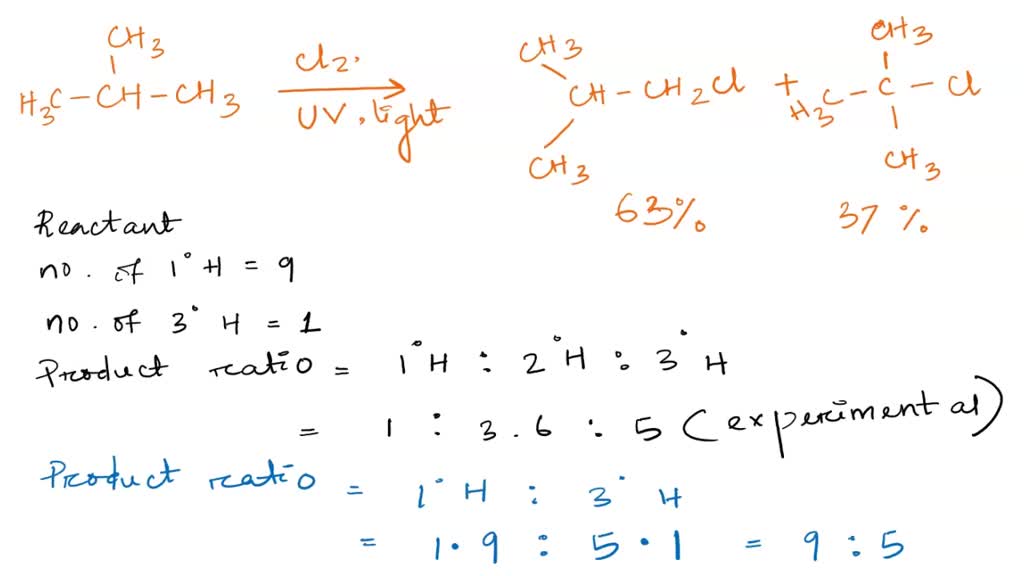 CH3
H3C-CH-CH3 Cl2. UV, light CH3 CH-CH2Cl + CH3 H3C-C-Cl
CH3 CH3
63% 37%
Reactant
no. of 1° H = 9
no. of 3° H = 1
Product ratio = 1°H : 2°H : 3°H
= 1 : 3.6 : 5 (experimental)
Product ratio = 1°H : 3°H
= 1·9 : 5·1 = 9:5